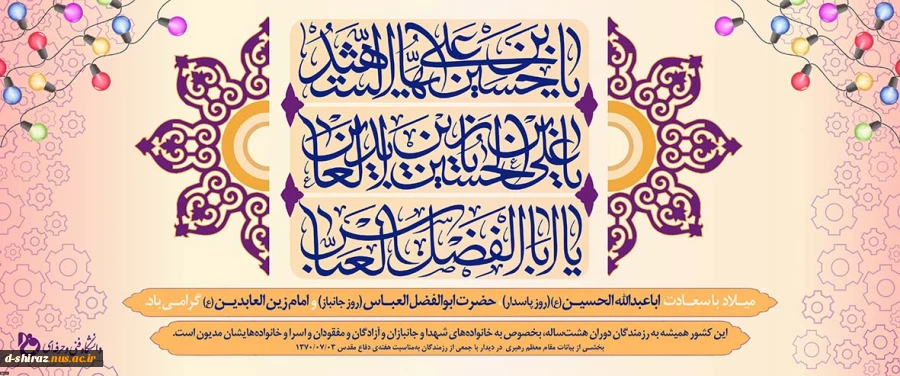 یا حسین بن علی ایها الشهید
یا علی بن الحسین یا زین العابدین
یا اباالفضل العباس
میلاد با سعادت اباعبدالله الحسین(ع)(روز پاسدار) حضرت ابوالفضل العباس(روز جانباز) و امام زین العابدین(ع) گرامی باد.
این کشور همیشه به رزمندگان دوران هشت‌ساله، بخصوص به خانواده‌های شهدا و جانبازان و آزادگان و مفقودان و اسرا و خانواده‌هایشان مدیون است.
بخشی از بیانات مقام معظم رهبری در دیدار با جمعی از رزمندگان به‌مناسبت هفته‌ی دفاع مقدس ۱۳۷۰/۰۷/۰۳
d-shiraz.nus.ac.ir